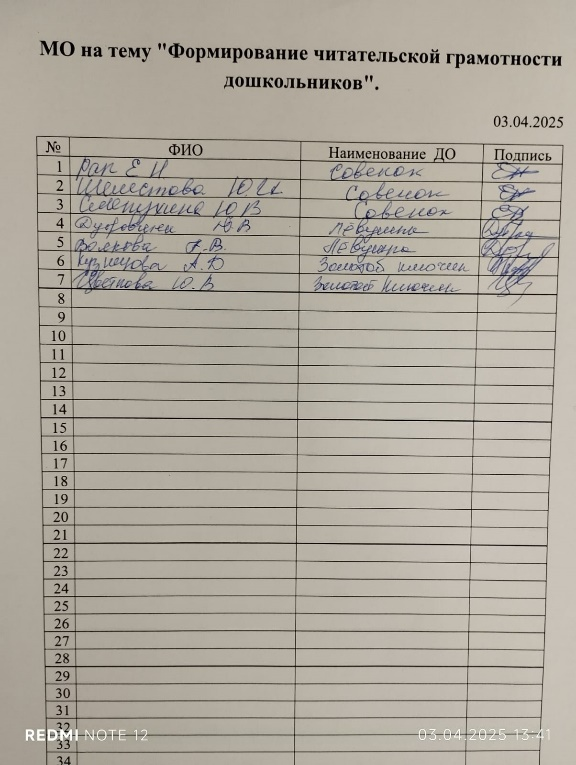 МО на тему "Формирование читательской грамотности
дошкольников".
03.04.2025
№ ФИО Наименование ДО Подпись
1 Рап Е Н Совенок
2 Шелестова Совенок
3 Ю В Совенок
4 В.В
5 Волкова В.
6 Кузнецова А.Ю Золотой ключик
7 Цветкова Ю.В Золотой ключик
8
9
10
11
12
13
14
15
16
17
18
19
20
21
22
23
24
25
26
27
28
29
30
31
32
REDMI NOTE 12 03.04.2025 13:41
33
34